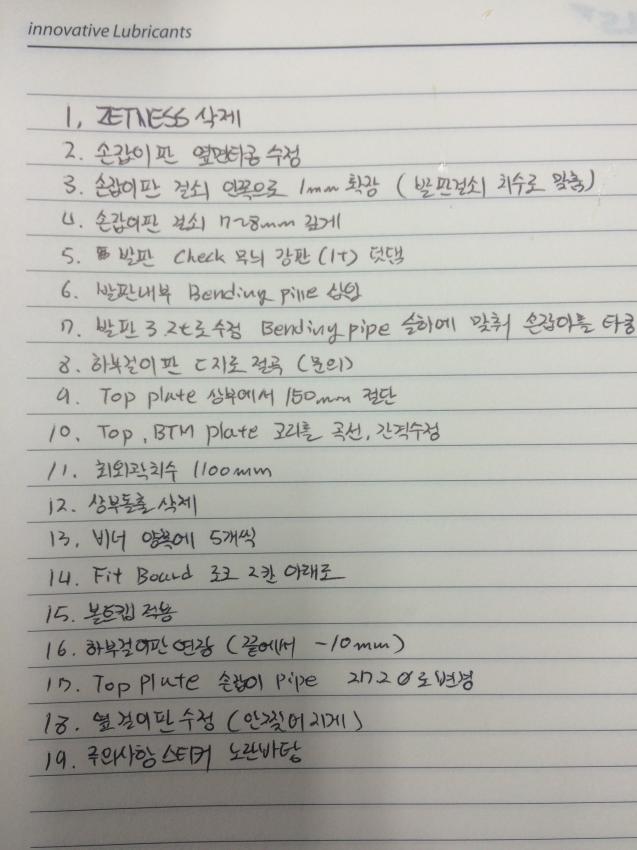 innovative Lubricants
1, ZETNESS 삭제
2. 손잡이판 옆면타공 수정
3. 손잡이판 걸쇠 안쪽으로 1mm 확장 ( 발판걸쇠 치수로 맞춤)
4. 손잡이판 걸쇠 7~8mm 깊게
5. 발판 Check 무늬 강판 (1t) 덧댐
6. 발판내부 Bending pipe 삽입
7. 발판 3.2t로수정 Bending pipe 맞춰 타공
8. 하부걸이판 ㄷ자로 절곡 (문의)
9. Top plate 상부에서 150mm 절단
10, Top, BTM plate 고리를 곡선, 간격수정
11. 최외곽치수 1100mm
12. 상부돌출 삭제
13, 비너 양쪽에 5개씩
14. Fit Board 로고 2칸 아래로
15. 볼트캡 적용
16. 하부걸이판 연장 (끝에서 -10mm)
17. Top plate 손잡이 pipe 27.2Ø로 변경
18. 옆걸이판 수정 (안찢어지게)
19. 주의사항 스티커 노란바탕